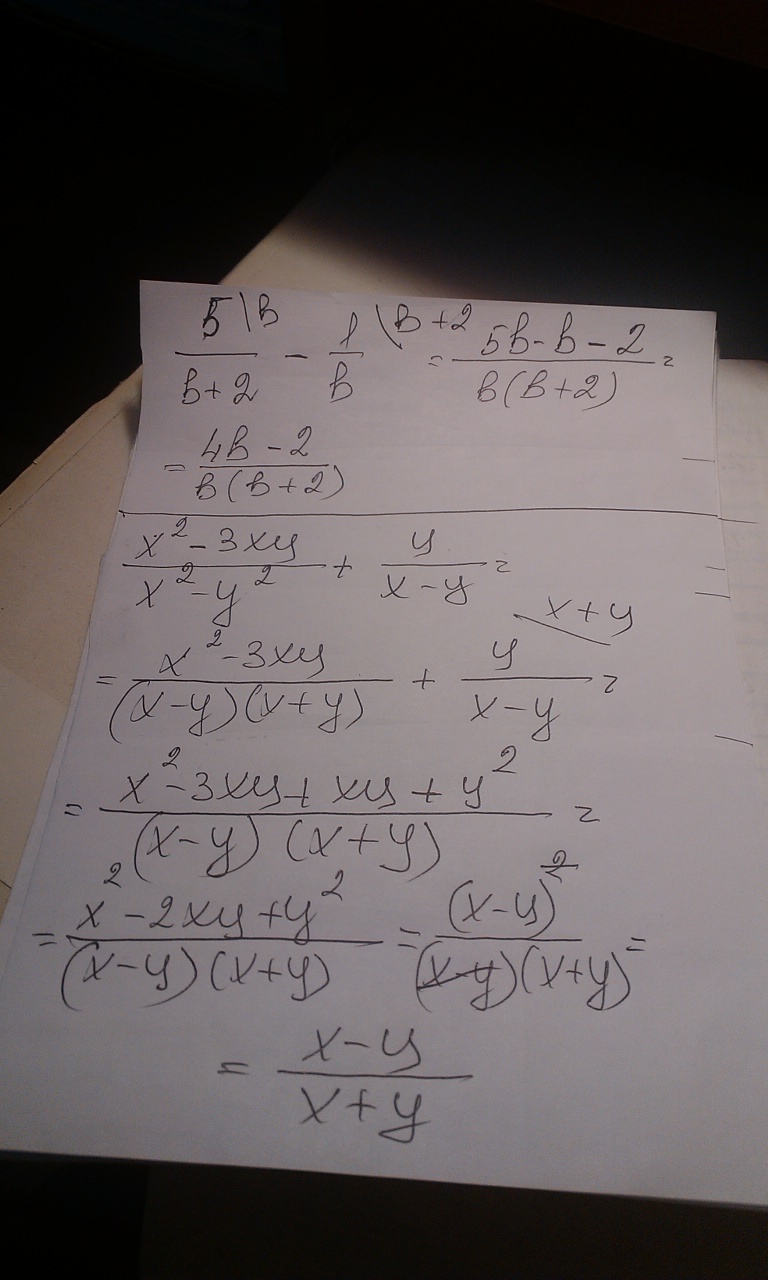 5\в/(в+2) - 1\в+2/в = (5в-в-2)/(в(в+2)) =
= (4в-2)/(в(в+2))
(x²-3xy)/(x²-y²) + y/(x-y) =
= (x²-3xy)/((x-y)(x+y)) + y\x+y/(x-y) =
= (x²-3xy+xy+y²)/((x-y)(x+y)) =
= (x²-2xy+y²)/((x-y)(x+y)) = (x-y)²/((x-y)(x+y)) =
= (x-y)/(x+y)